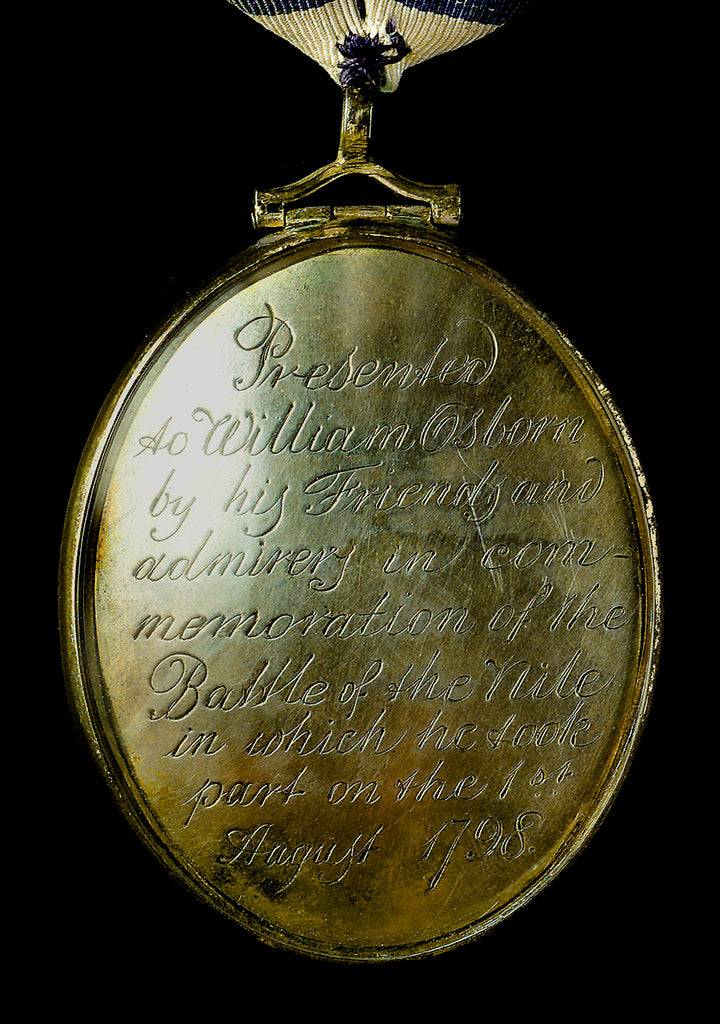 Presented
to William Osborn
by his Friends and
admirers in com-
memoration of the
Battle of the Nile
in which he took
part on the 1st
August 1798.